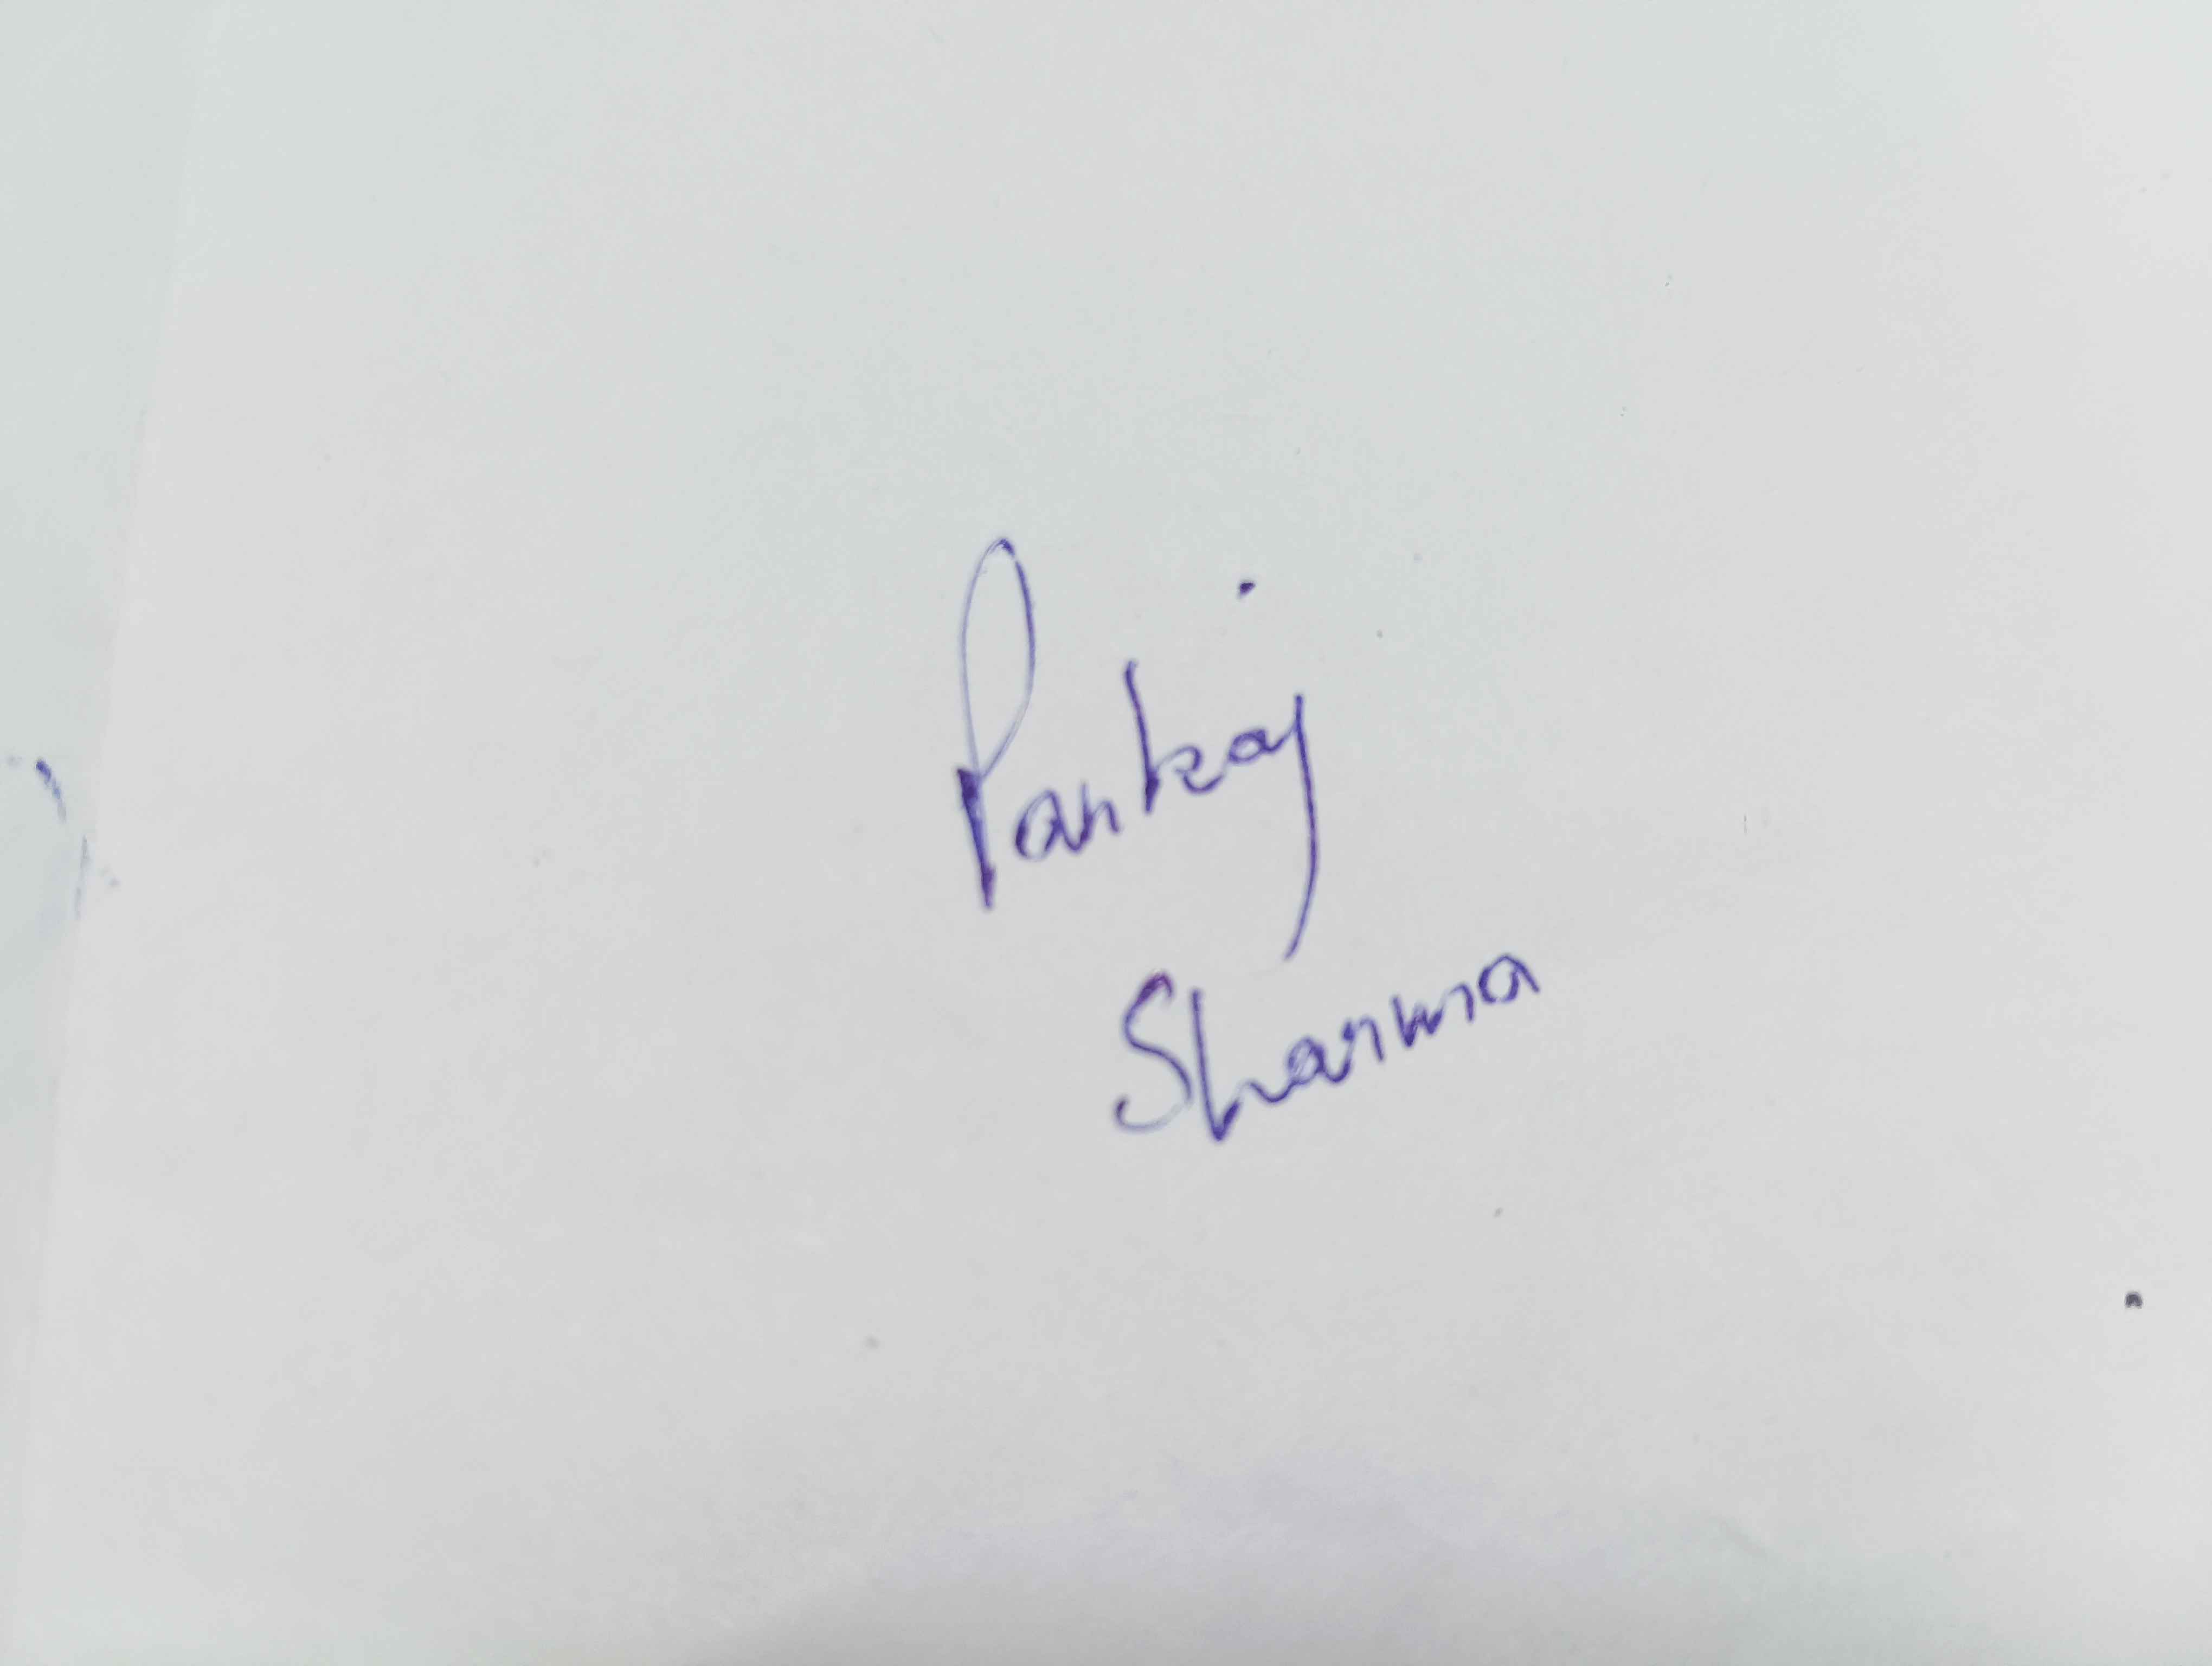 Pankaj
Sharma